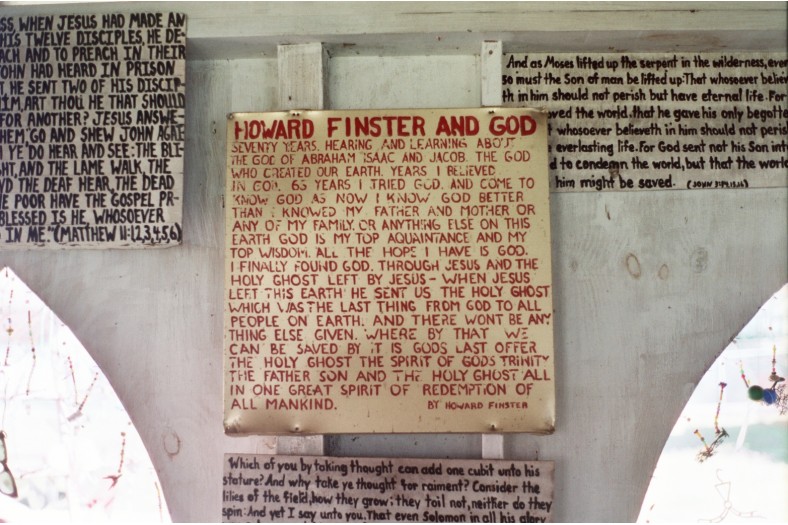 SS, WHEN JESUS HAD MADE AN
HIS TWELVE DISCIPLES, HE DE-
ACH AND TO PREACH IN THEIR
JOHN HAD HEARD IN PRISON
T HE SENT TWO OF HIS DISCIP-
HIM, ART THOU HE THAT SHOULD
FOR ANOTHER? JESUS ANSWE-
HEM, GO AND SHEW JOHN AGAI
H YE DO HEAR AND SEE: THE BLI-
GHT, AND THE LAME WALK, THE
ND THE DEAF HEAR, THE DEAD
E POOR HAVE THE GOSPEL PR-
BLESSED IS HE, WHOSOEVER
D IN ME." (MATTHEW 11:1,2,3,4,5,6)
HOWARD FINSTER AND GOD
SEVENTY YEARS, HEARING, AND LEARNING ABOUT
THE GOD OF ABRAHAM ISAAC AND JACOB. THE GOD
WHO CREATED OUR EARTH. YEARS I BELIEVED
IN GOD. 63 YEARS I TRIED GOD. AND COME TO
KNOW GOD AS NOW I KNOW GOD BETTER
THAN I KNOWED MY FATHER AND MOTHER OR
ANY OF MY FAMILY. OR ANYTHING ELSE ON THIS
EARTH GOD IS MY TOP AQUAINTANCE AND MY
TOP WISDOM. ALL THE HOPE I HAVE IS GOD.
I FINALLY FOUND GOD. THROUGH JESUS AND THE
HOLY GHOST LEFT BY JESUS - WHEN JESUS
LEFT THIS EARTH HE SENT US THE HOLY GHOST
WHICH WAS THE LAST THING FROM GOD TO ALL
PEOPLE ON EARTH. AND THERE WONT BE ANY
THING ELSE GIVEN. WHERE BY THAT WE
CAN BE SAVED BY IT IS GODS LAST OFFER
THE HOLY GHOST THE SPIRIT OF GODS TRINITY
THE FATHER SON AND THE HOLY GHOST ALL
IN ONE GREAT SPIRIT OF REDEMPTION OF
ALL MANKIND. BY HOWARD FINSTER
And as Moses lifted up the serpent in the wilderness, even
so must the Son of man be lifted up: That whosoever believ
th in him should not perish but have eternal life. For
oved the world. that he gave his only begotte
whosoever believeth in him should not peris
everlasting life. For God sent not his Son int
d to condemn the world, but that the world
him might be saved. (JOHN
Which of you by taking thought can add one cubit unto his
stature? And why take ye thought for raiment? Consider the
lilies of the field, how they grow; they toil not, neither do they
spin: And yet I say unto you, That even Solomon in all his glory